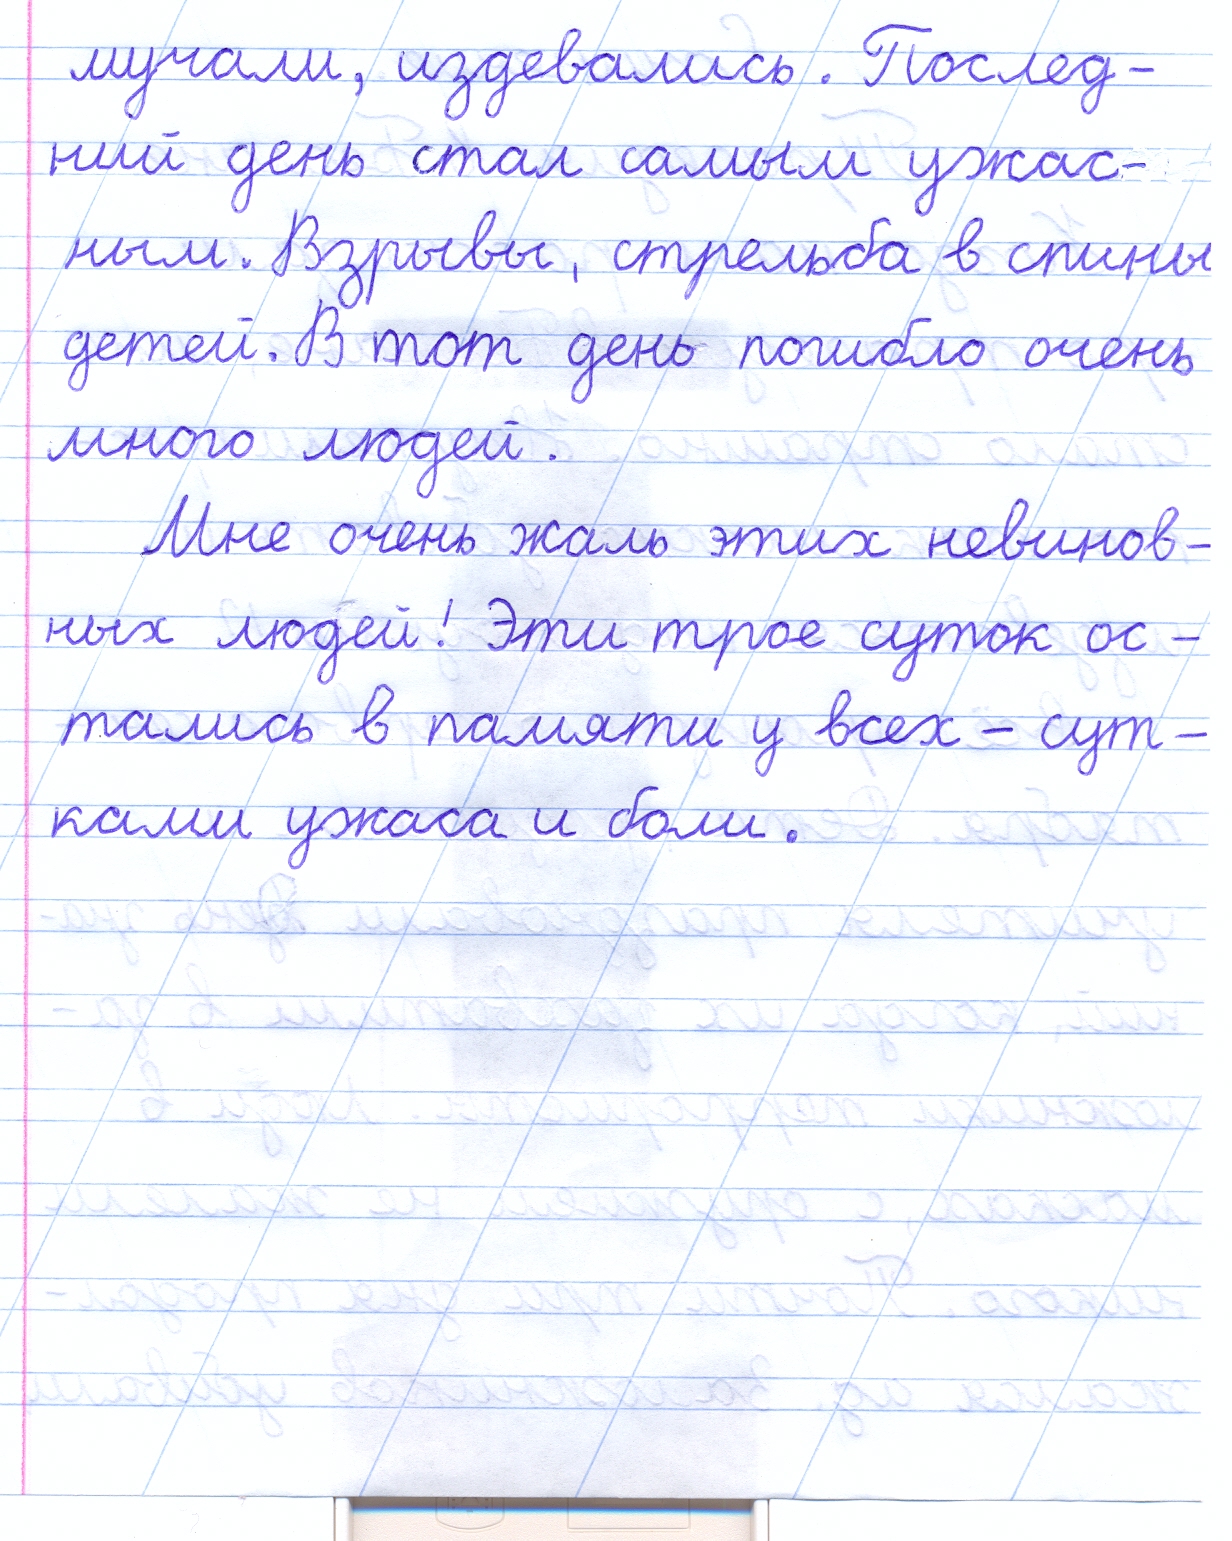 мучали, издевались. Послед-
ний день стал самым ужас-
ным. Взрывы, стрельба в спины
детей. В тот день погибло очень
много людей.
Мне очень жаль этих невинов-
ных людей! Эти трое суток ос-
тались в памяти у всех - сут-
ками ужаса и боли.